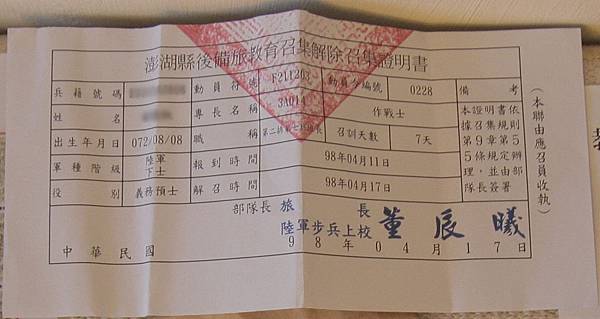 澎湖縣後備旅教育召集解除召集證明書
兵籍號碼 動員符號 F211203 動員令編號 0228 備考
姓名 專長名稱 3A014 作戰士
出生年月日 072/08/08 職稱 召訓天數 7天
軍種階級 陸軍下士 報到時間 98年04月11日
役別 義務預士 解召時間 98年04月17日
本證明書依
據召集規則
第9章第5
5條規定辦
理，並由部
隊長簽署
部隊長 旅長
陸軍步兵上校 董辰曦
中華民國 98年04月17日
（本聯由應召員收執）